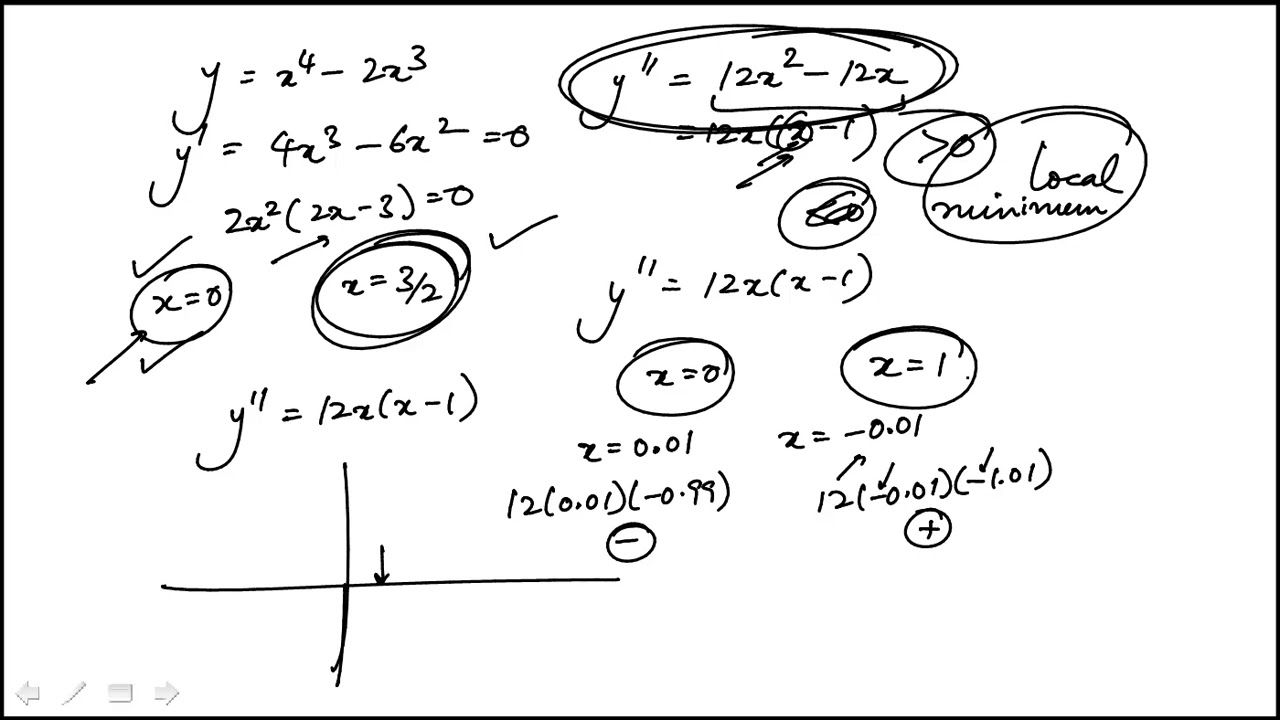 y = x⁴ − 2x³
y' = 4x³ − 6x² = 0
2x²(2x−3) = 0
x = 0
x = 3/2
y'' = 12x(x−1)
y'' = 12x² − 12x
= 12x(x−1)
>0
local
minimum
y'' = 12x(x−1)
x = 0
x = 1
x = 0.01
x = −0.01
12(0.01)(−0.99)
12(−0.01)(−1.01)
−
+